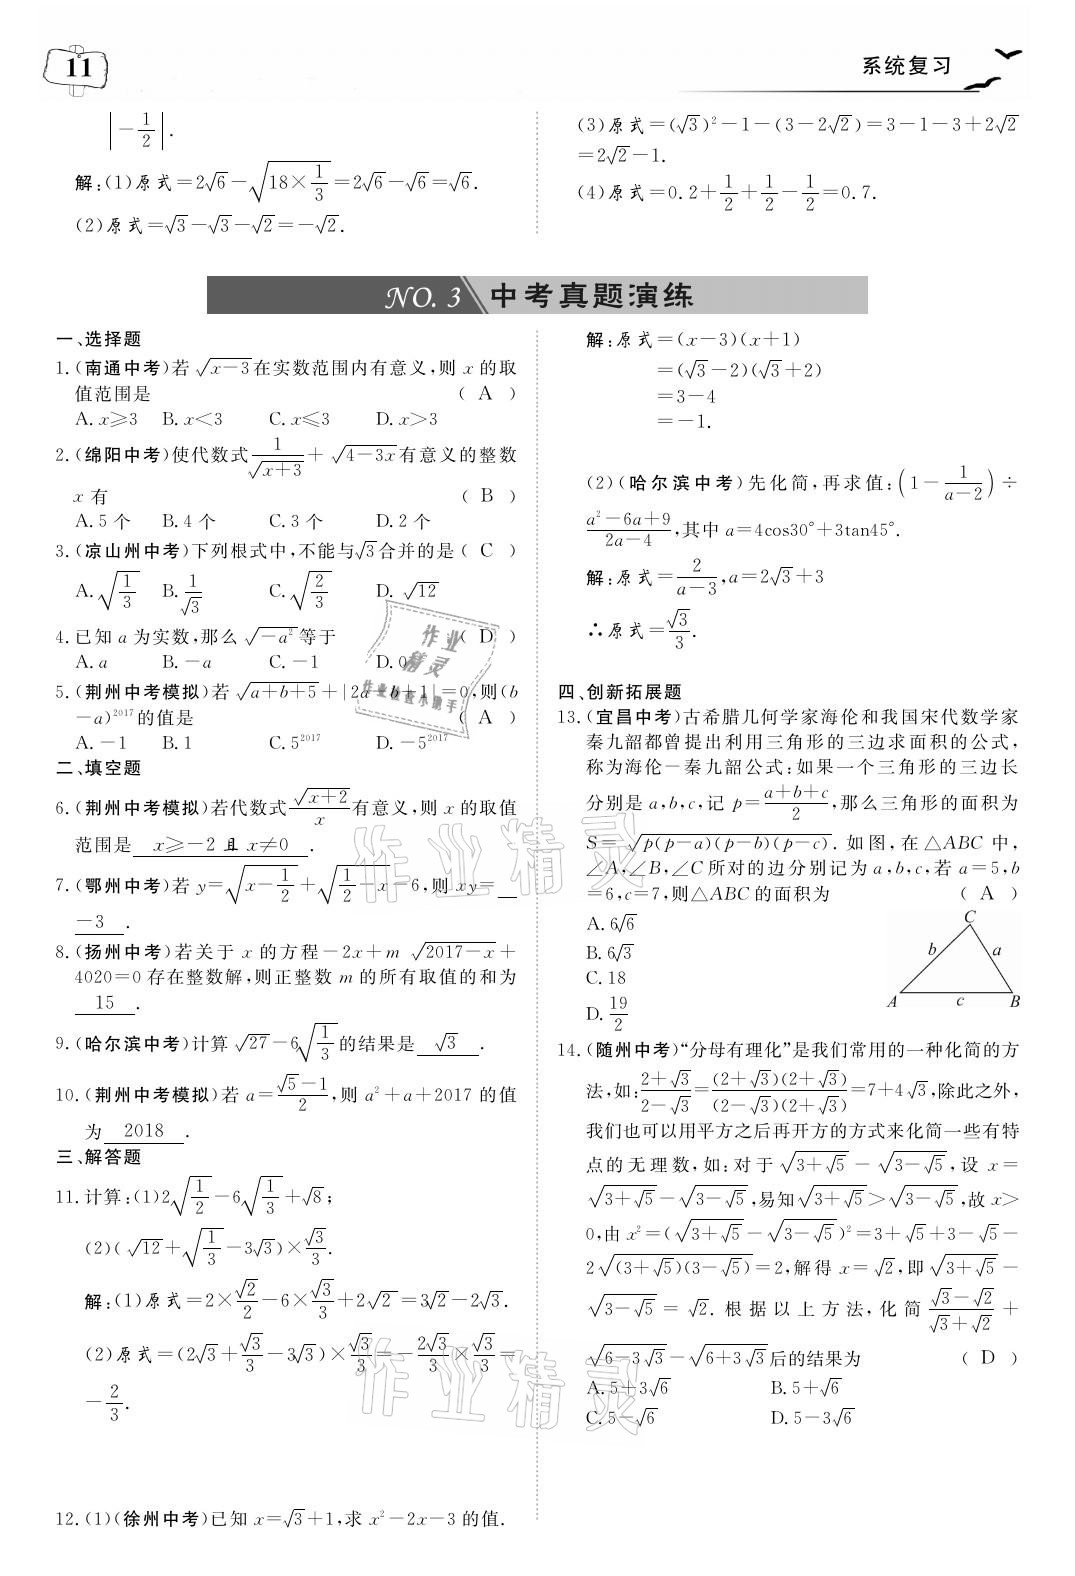 11
系统复习
|-1/2|.
解:(1)原式=2√6-√(18×1/3)=2√6-√6=√6.
(2)原式=√3-√3-√2=-√2.
(3)原式=(√3)²-1-(3-2√2)=3-1-3+2√2
=2√2-1.
(4)原式=0.2+1/2+1/2-1/2=0.7.
NO. 3 中考真题演练
一、选择题
1.(南通中考)若√(x-3)在实数范围内有意义,则 x 的取
值范围是 ( A )
A. x≥3 B. x<3 C. x≤3 D. x>3
2.(绵阳中考)使代数式1/√(x+3)+√(4-3x)有意义的整数
x 有 ( B )
A. 5 个 B. 4 个 C. 3 个 D. 2 个
3.(凉山州中考)下列根式中,不能与√3合并的是( C )
A. √(1/3) B. 1/√3 C. √(2/3) D. √12
4.已知 a 为实数,那么√(-a²)等于 ( D )
A. a B. -a C. -1 D. 0
5.(荆州中考模拟)若√(a+b+5)+|2a-b+1|=0,则(b
-a)²⁰¹⁷的值是 ( A )
A. -1 B. 1 C. 5²⁰¹⁷ D. -5²⁰¹⁷
二、填空题
6.(荆州中考模拟)若代数式√(x+2)/x有意义,则 x 的取值
范围是 x≥-2 且 x≠0 .
7.(鄂州中考)若 y=√(x-1/2)+√(1/2-x)-6,则 xy=
-3 .
8.(扬州中考)若关于 x 的方程-2x+m√(2017-x)+
4020=0 存在整数解,则正整数 m 的所有取值的和为
15 .
9.(哈尔滨中考)计算√27-6√(1/3)的结果是 √3 .
10.(荆州中考模拟)若 a=(√5-1)/2,则 a²+a+2017 的值
为 2018 .
三、解答题
11.计算:(1)2√(1/2)-6√(1/3)+√8;
(2)(√12+√(1/3)-3√3)×√3/3.
解:(1)原式=2×√2/2-6×√3/3+2√2=3√2-2√3.
(2)原式=(2√3+√3/3-3√3)×√3/3=-2√3/3×√3/3=
-2/3.
12.(1)(徐州中考)已知 x=√3+1,求 x²-2x-3 的值.
解:原式=(x-3)(x+1)
=(√3-2)(√3+2)
=3-4
=-1.
(2)(哈尔滨中考)先化简,再求值:(1-1/(a-2))÷
(a²-6a+9)/(2a-4),其中 a=4cos30°+3tan45°.
解:原式=2/(a-3),a=2√3+3
∴原式=√3/3.
四、创新拓展题
13.(宜昌中考)古希腊几何学家海伦和我国宋代数学家
秦九韶都曾提出利用三角形的三边求面积的公式,
称为海伦-秦九韶公式:如果一个三角形的三边长
分别是 a,b,c,记 p=(a+b+c)/2,那么三角形的面积为
S=√(p(p-a)(p-b)(p-c)). 如图,在△ABC 中,
∠A,∠B,∠C所对的边分别记为 a,b,c,若 a=5,b
=6,c=7,则△ABC 的面积为 ( A )
A. 6√6
B. 6√3
C. 18
D. 19/2
C
b a
A c B
14.(随州中考)“分母有理化”是我们常用的一种化简的方
法,如:(2+√3)/(2-√3)=(2+√3)(2+√3)/(2-√3)(2+√3)=7+4√3,除此之外,
我们也可以用平方之后再开方的方式来化简一些有特
点的无理数,如:对于√(3+√5)-√(3-√5),设 x=
√(3+√5)-√(3-√5),易知√(3+√5)>√(3-√5),故 x>
0,由 x²=(√(3+√5)-√(3-√5))²=3+√5+3-√5-
2√((3+√5)(3-√5))=2,解得 x=√2,即√(3+√5)-
√(3-√5)=√2. 根据以上方法,化简(√3-√2)/(√3+√2)+
√(6-3√3)-√(6+3√3)后的结果为 ( D )
A. 5+3√6 B. 5+√6
C. 5-√6 D. 5-3√6
作业精灵
作业检查小助手
作业精灵
作业精灵